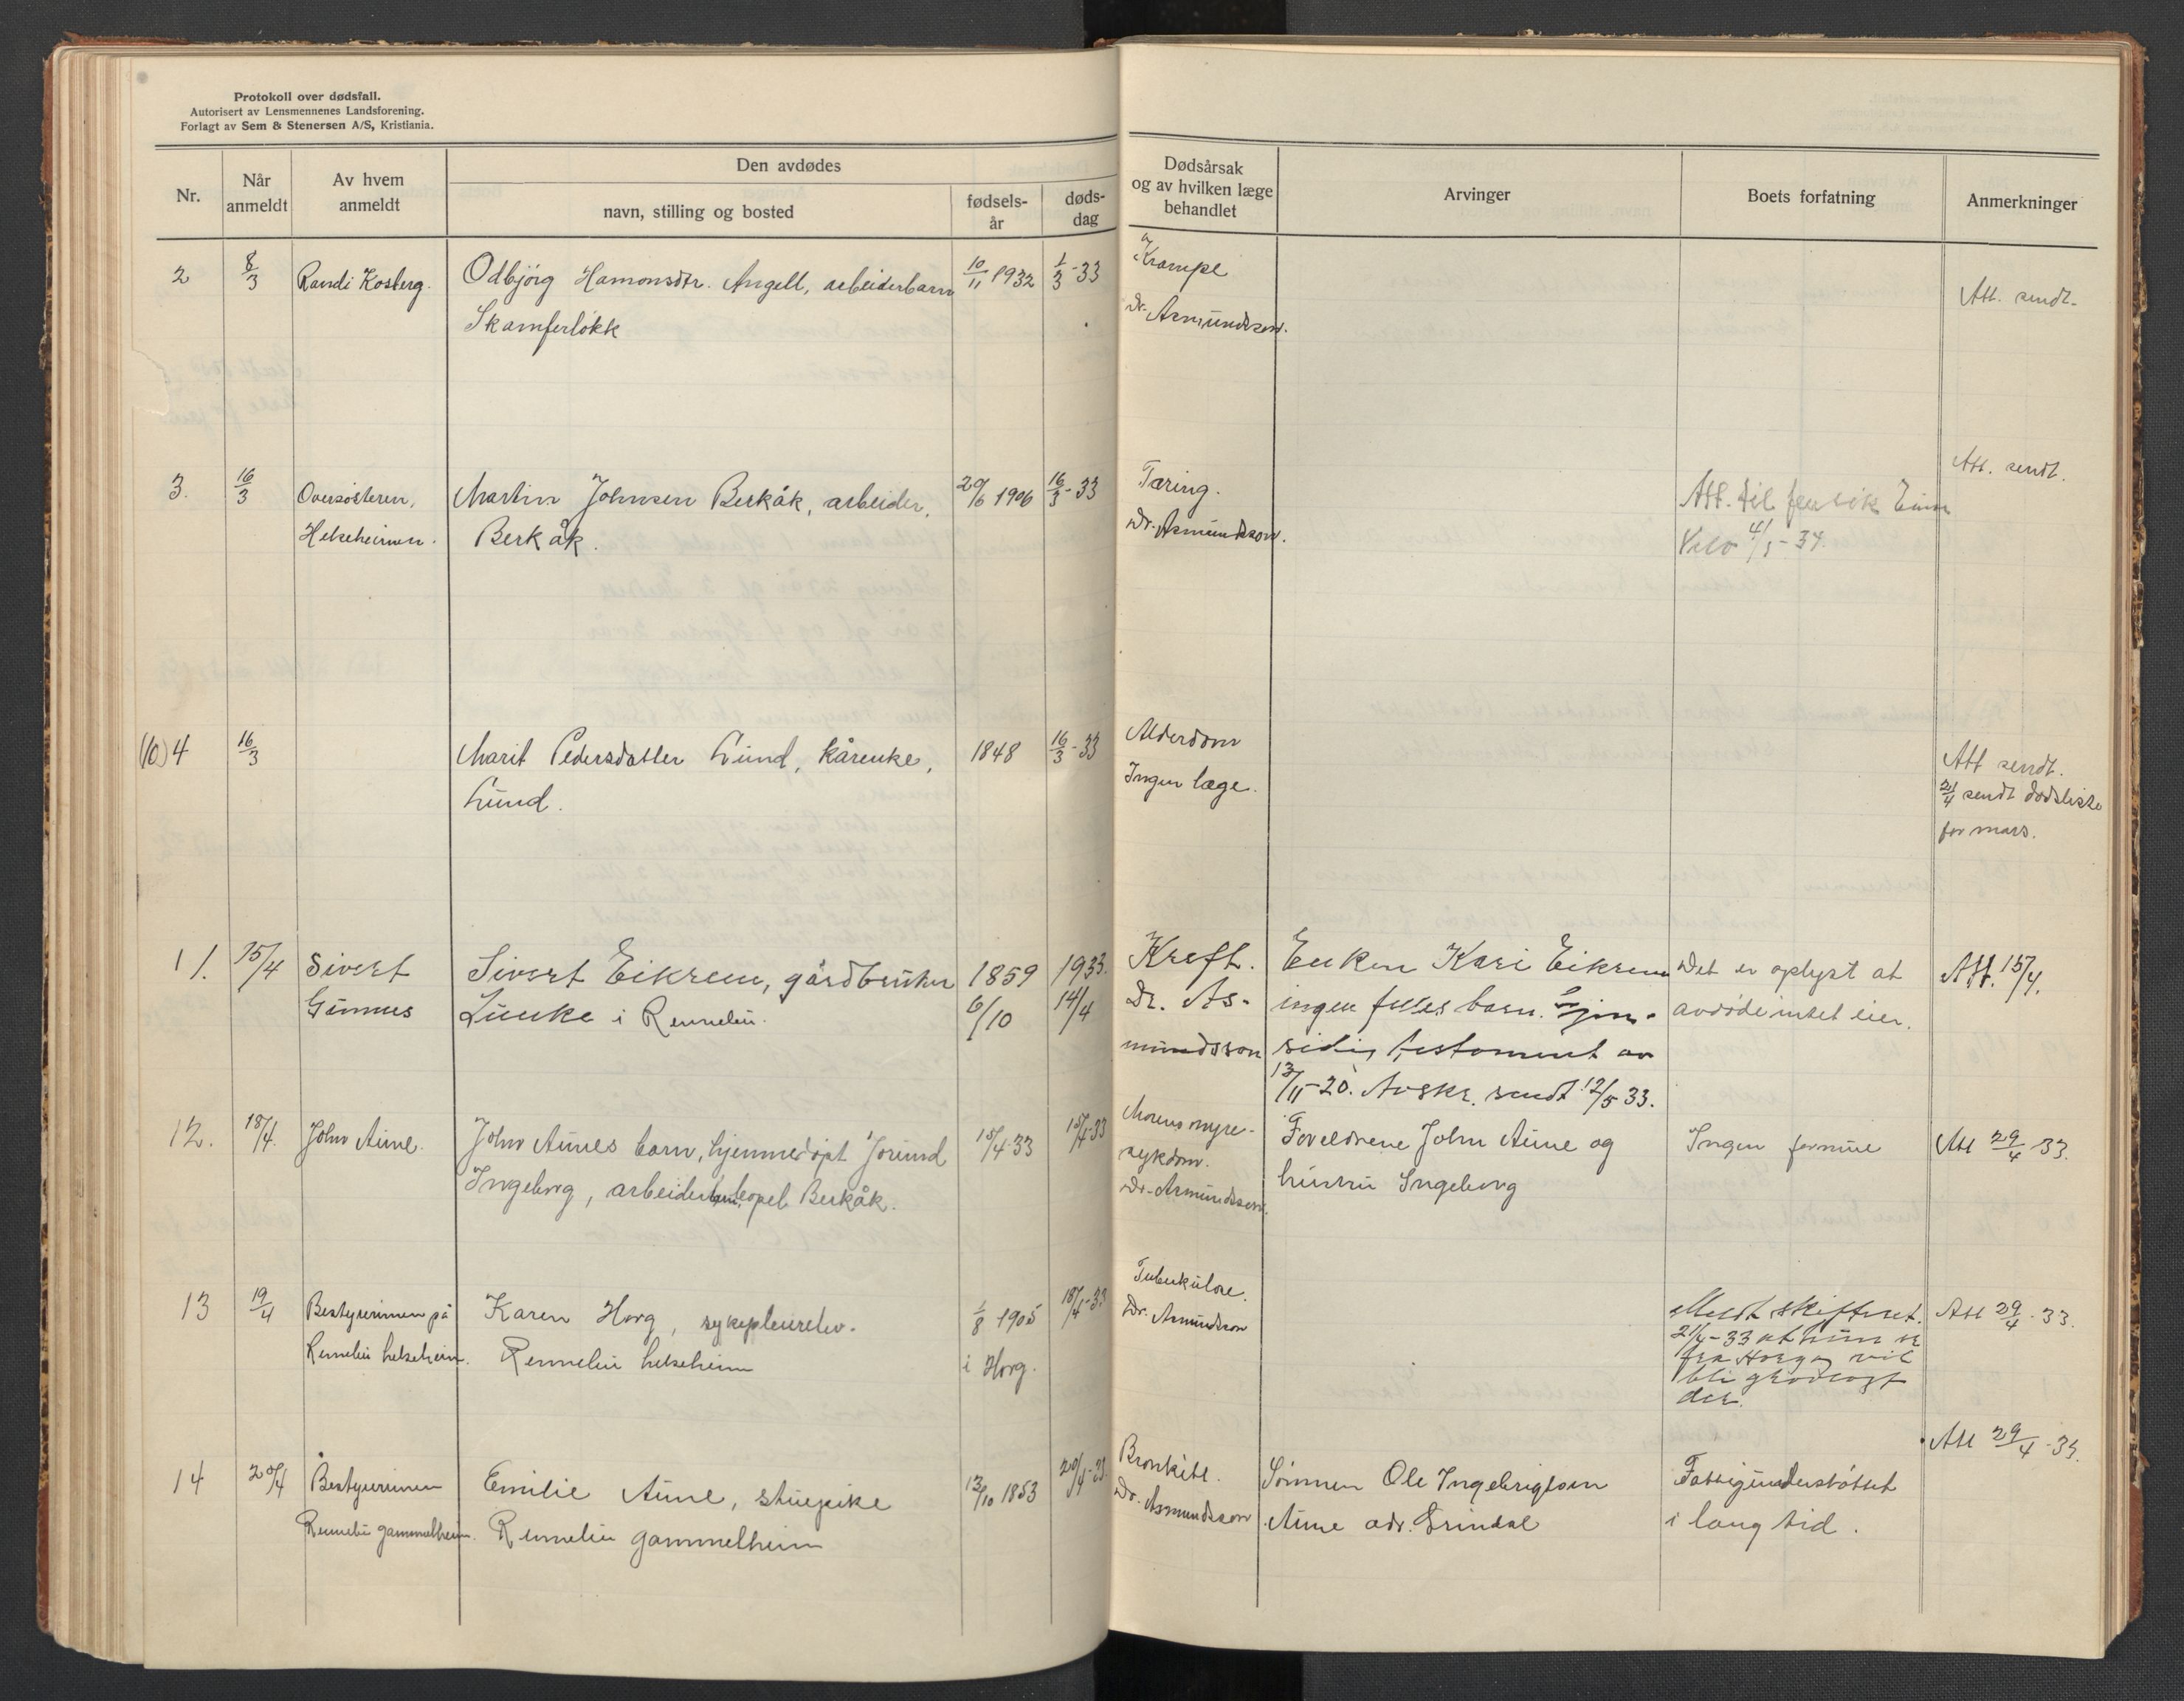 Protokoll over dødsfall.
Autorisert av Lensmennenes Landsforening.
Forlagt av Sem & Stenersen A/S, Kristiania.
Nr.
Når anmeldt
Av hvem anmeldt
Den avdødes
navn, stilling og bosted
fødselsår
dødsdag
Dødsårsak og av hvilken læge behandlet
Arvinger
Boets forfatning
Anmerkninger
2 8/3 Randi Kosberg. Odbjörg Hamonsdtr. Angell, arbeiderbarn 10/11 1932 1/3-33 Krampe Att. sendt.
Skamferløkk Dr. Asmundsson.
3. 16/3 Oversösteren, Martin Johnsen Berkåk, arbeider, 29/6 1906 16/3-33 Tæring. Att. sendt.
Helseheimen. Berkåk. Dr. Asmundsson. Att. til
4/1-34.
(10) 4 16/3 Marit Pedersdatter Lund, kårenke, 1848 16/3-33 Alderdom Att sendt.
Lund. Ingen læge. 21/4 sendt dødsliste
for mars.
11. 15/4 Sivert Sivert Eikrem, gårdbruker 1859 1933. Kreft. Enken Kari Eikrem Det er oplyst at Att. 15/4.
Gunnes i Rennebu. 6/10 14/4 Dr. As- ingen felles barn. Gjen- avdöde intet eier.
mundsson sidig testament av
13/11-20. Avskr. sendt 12/5 33.
12. 18/4. John Aune. John Aunes barn, hjemmedöpt Jorund 15/4 33 15/4-33 Foreldrene John Aune og Ingen formue Att 29/4-33.
Ingeborg, arbeiderbarn, Berkåk. sykdom. hustru Ingeborg
Dr. Asmundsson.
13 19/4 Bestyrerinnen på Karen Horg, sykepleierelev. 1/8 1905 18/4-33 Tuberkulose. Meldt skifteret. Att 29/4-33.
Rennebu helseheim. Rennebu helseheim i Horg. Dr. Asmundsson 21/4-33 at hun er
fra Horg og vil
bli gravlagt
der.
14 20/4 Bestyrerinnen Emilie Aune, stuepike 13/10 1853 20/4-33. Bronkitt. Sönnen Ole Ingebrigtsen Fattigunderstöttet Att 29/4-33.
Rennebu gammelheim. Rennebu gammelheim Dr. Asmundsson Aune adr. Grindal i lang tid.